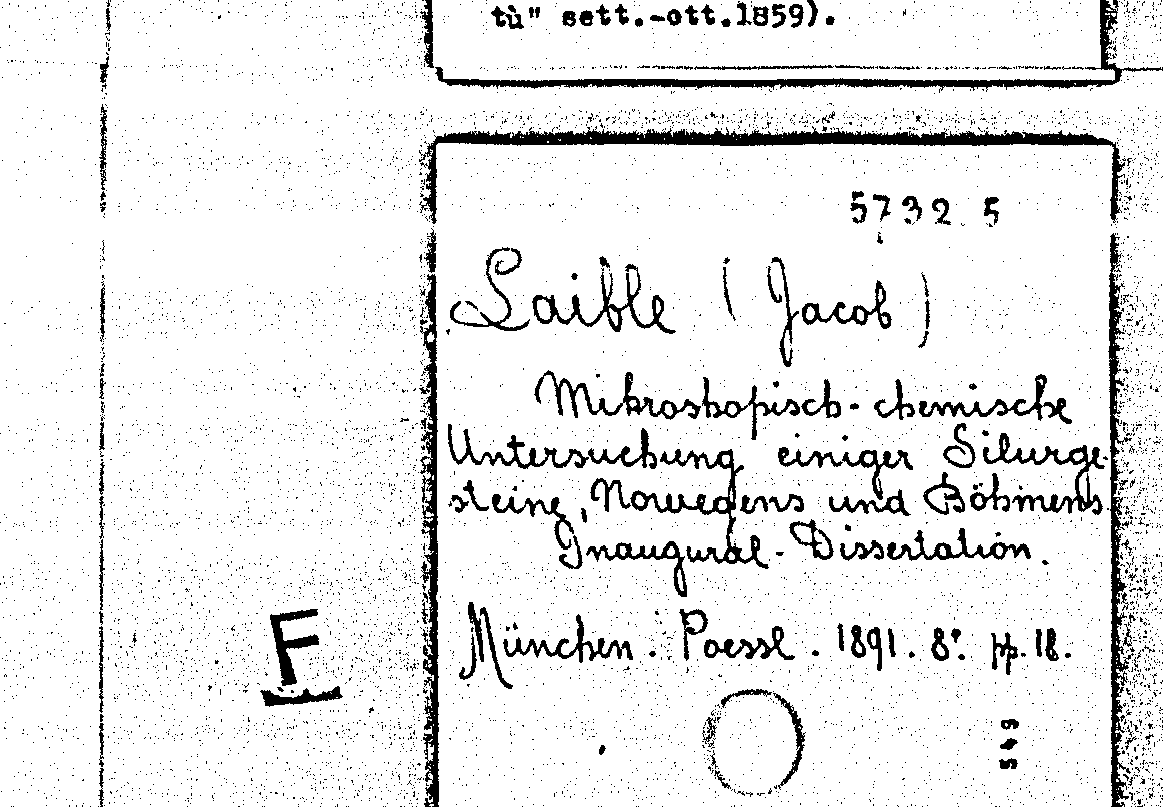 tù" sett.-ott.1859).
5732 5
Laible (Jacob)
Mikroskopisch-chemische
Untersuchung einiger Silurge-
steine, Norwegens und Böhmens.
Inaugural-Dissertation.
München. Poessl. 1891. 8º. pp. 18.
F
549